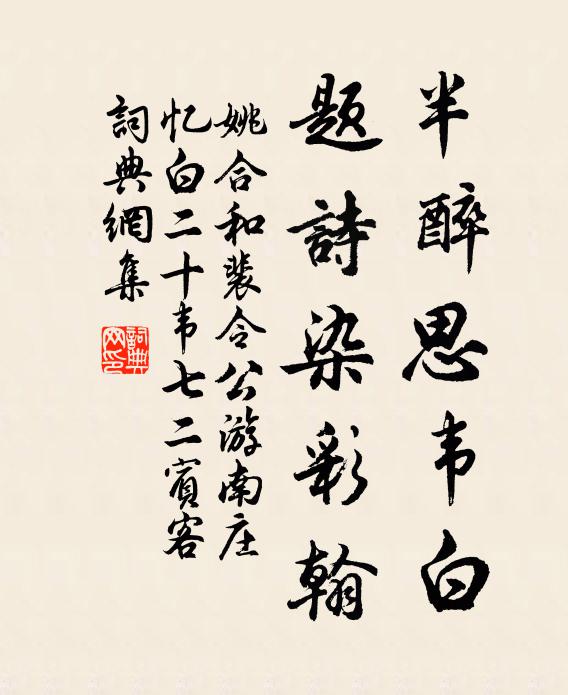 半醉思韦白
题詩染彩翰
姚合和裴令公游南庄
忆白二十韦七二賓客
詞典網集
詞典網印